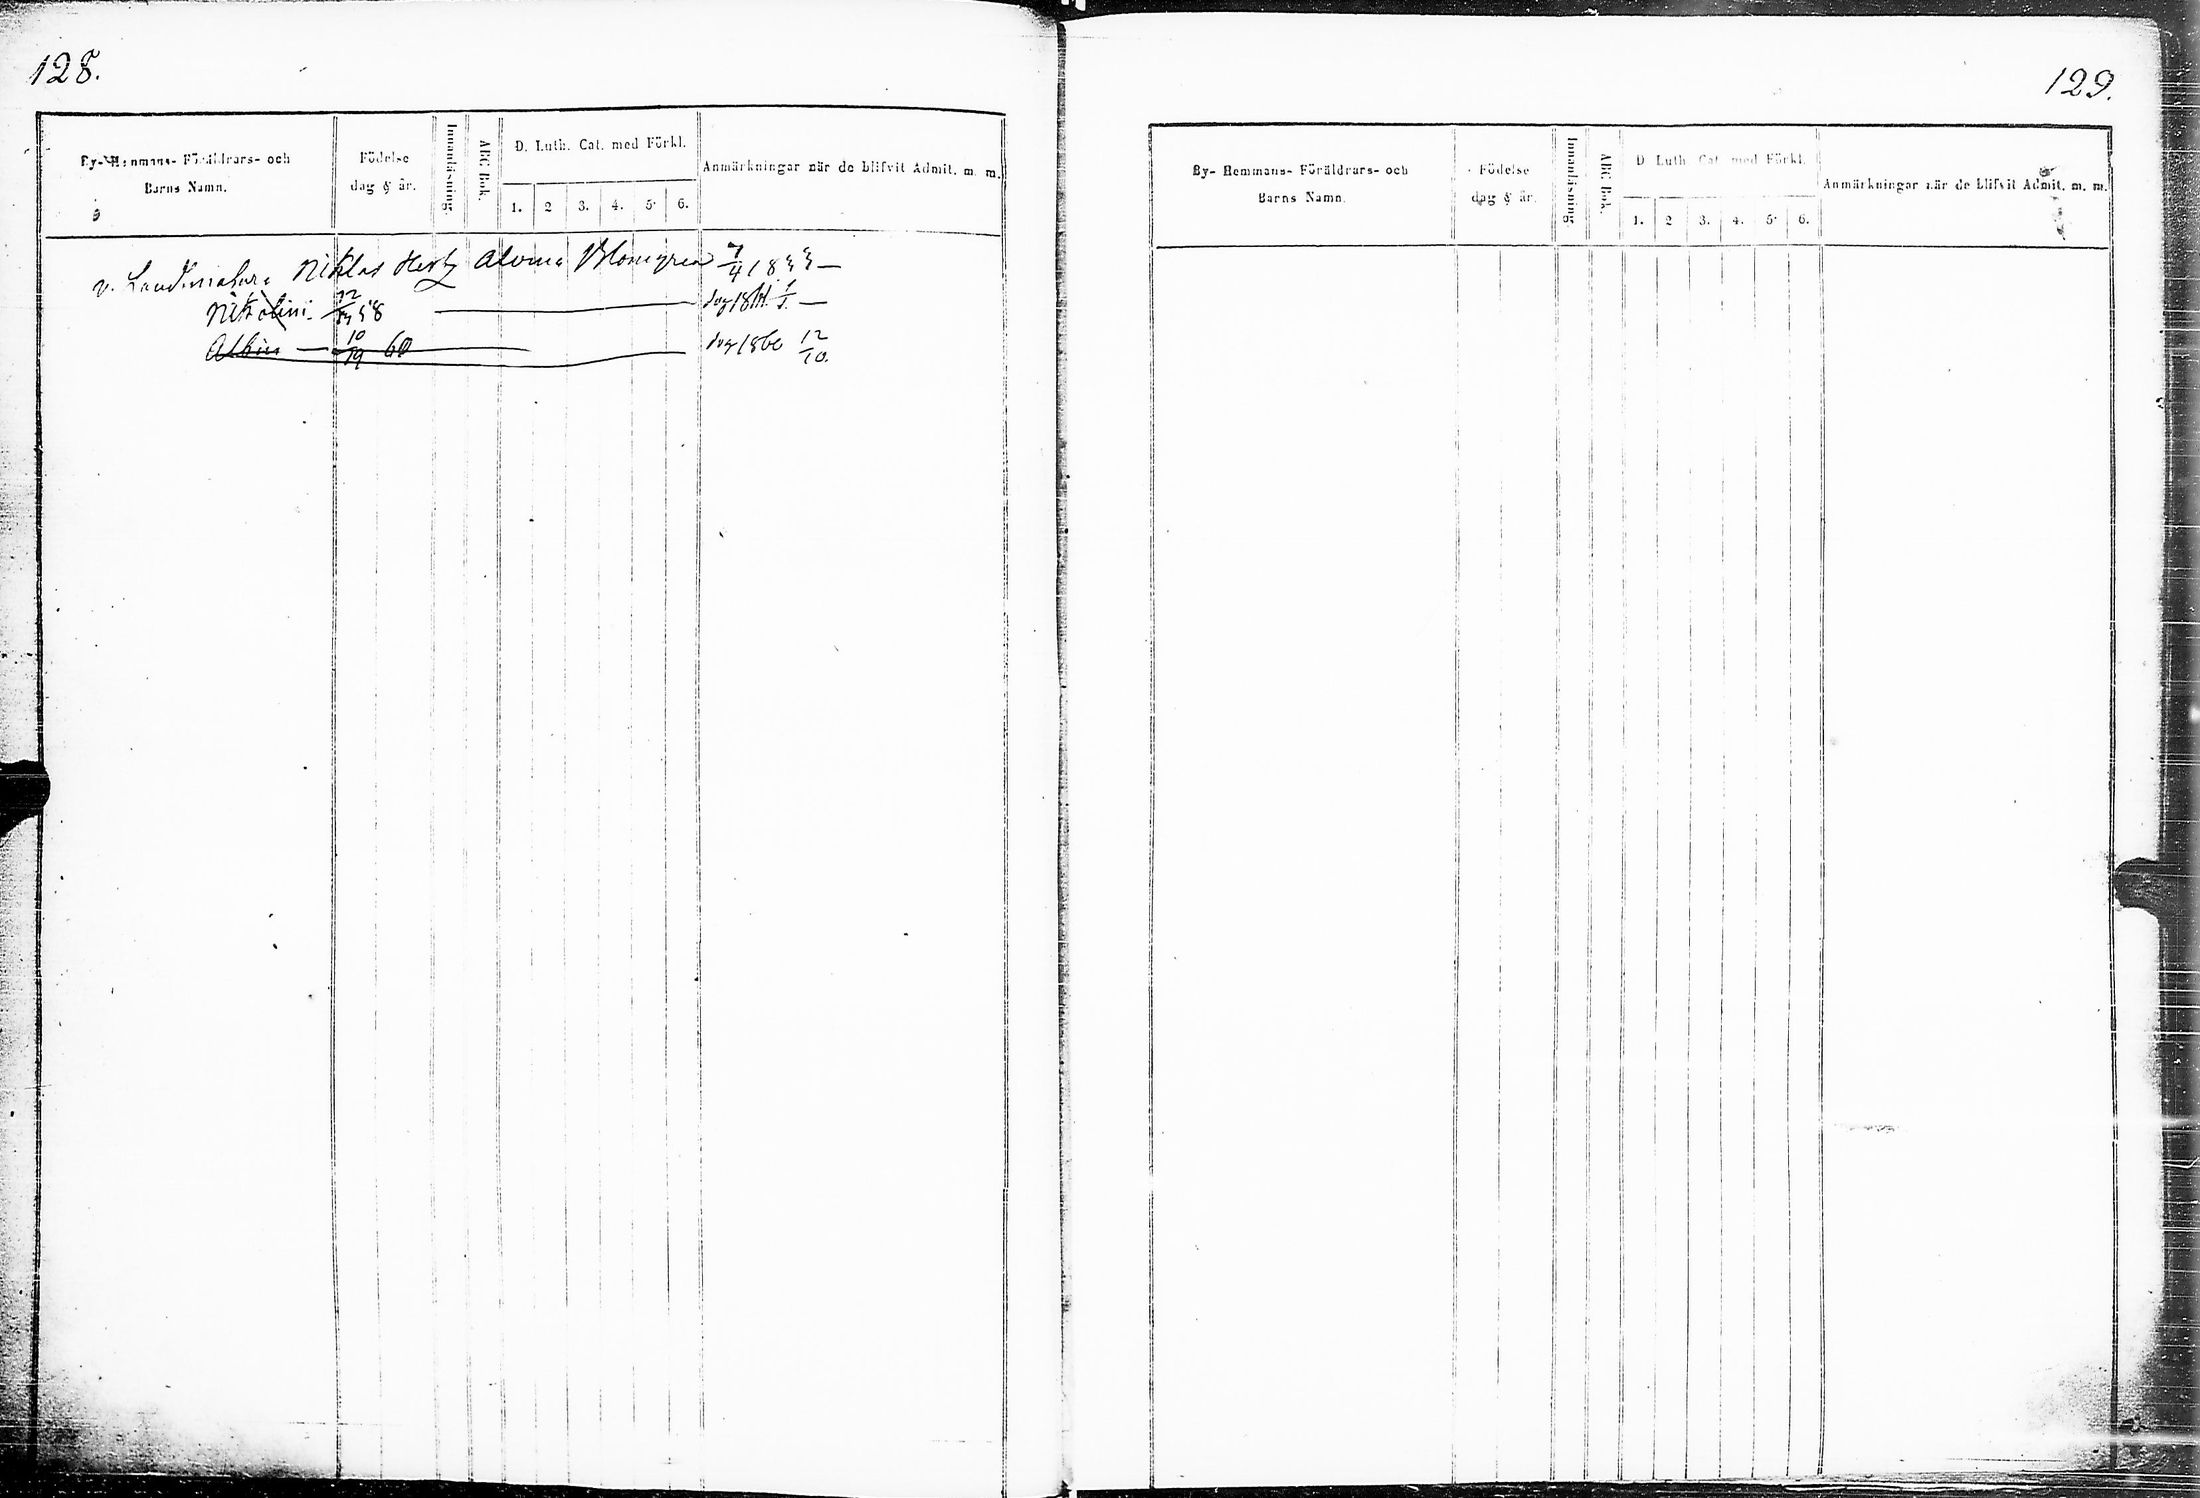 128.
By- Hemmans- Föräldrars- och
Barns Namn.
Födelse
dag & år.
Innanläsning.
ABC Bok.
D. Luth. Cat. med Förkl.
1. 2 3. 4. 5. 6.
Anmärkningar när de blifvit Admit. m. m.
v. Landtmätare Niklas Hertz Alvina Blomgren 7/4 1833 —
Nikolini 58
Albin — 10/19 60 dog 1860 12/10.
129.
By- Hemmans- Föräldrars- och
Barns Namn.
Födelse
dag & år.
Innanläsning.
ABC Bok.
D. Luth. Cat. med Förkl.
1. 2 3. 4. 5. 6.
Anmärkningar när de blifvit Admit. m. m.